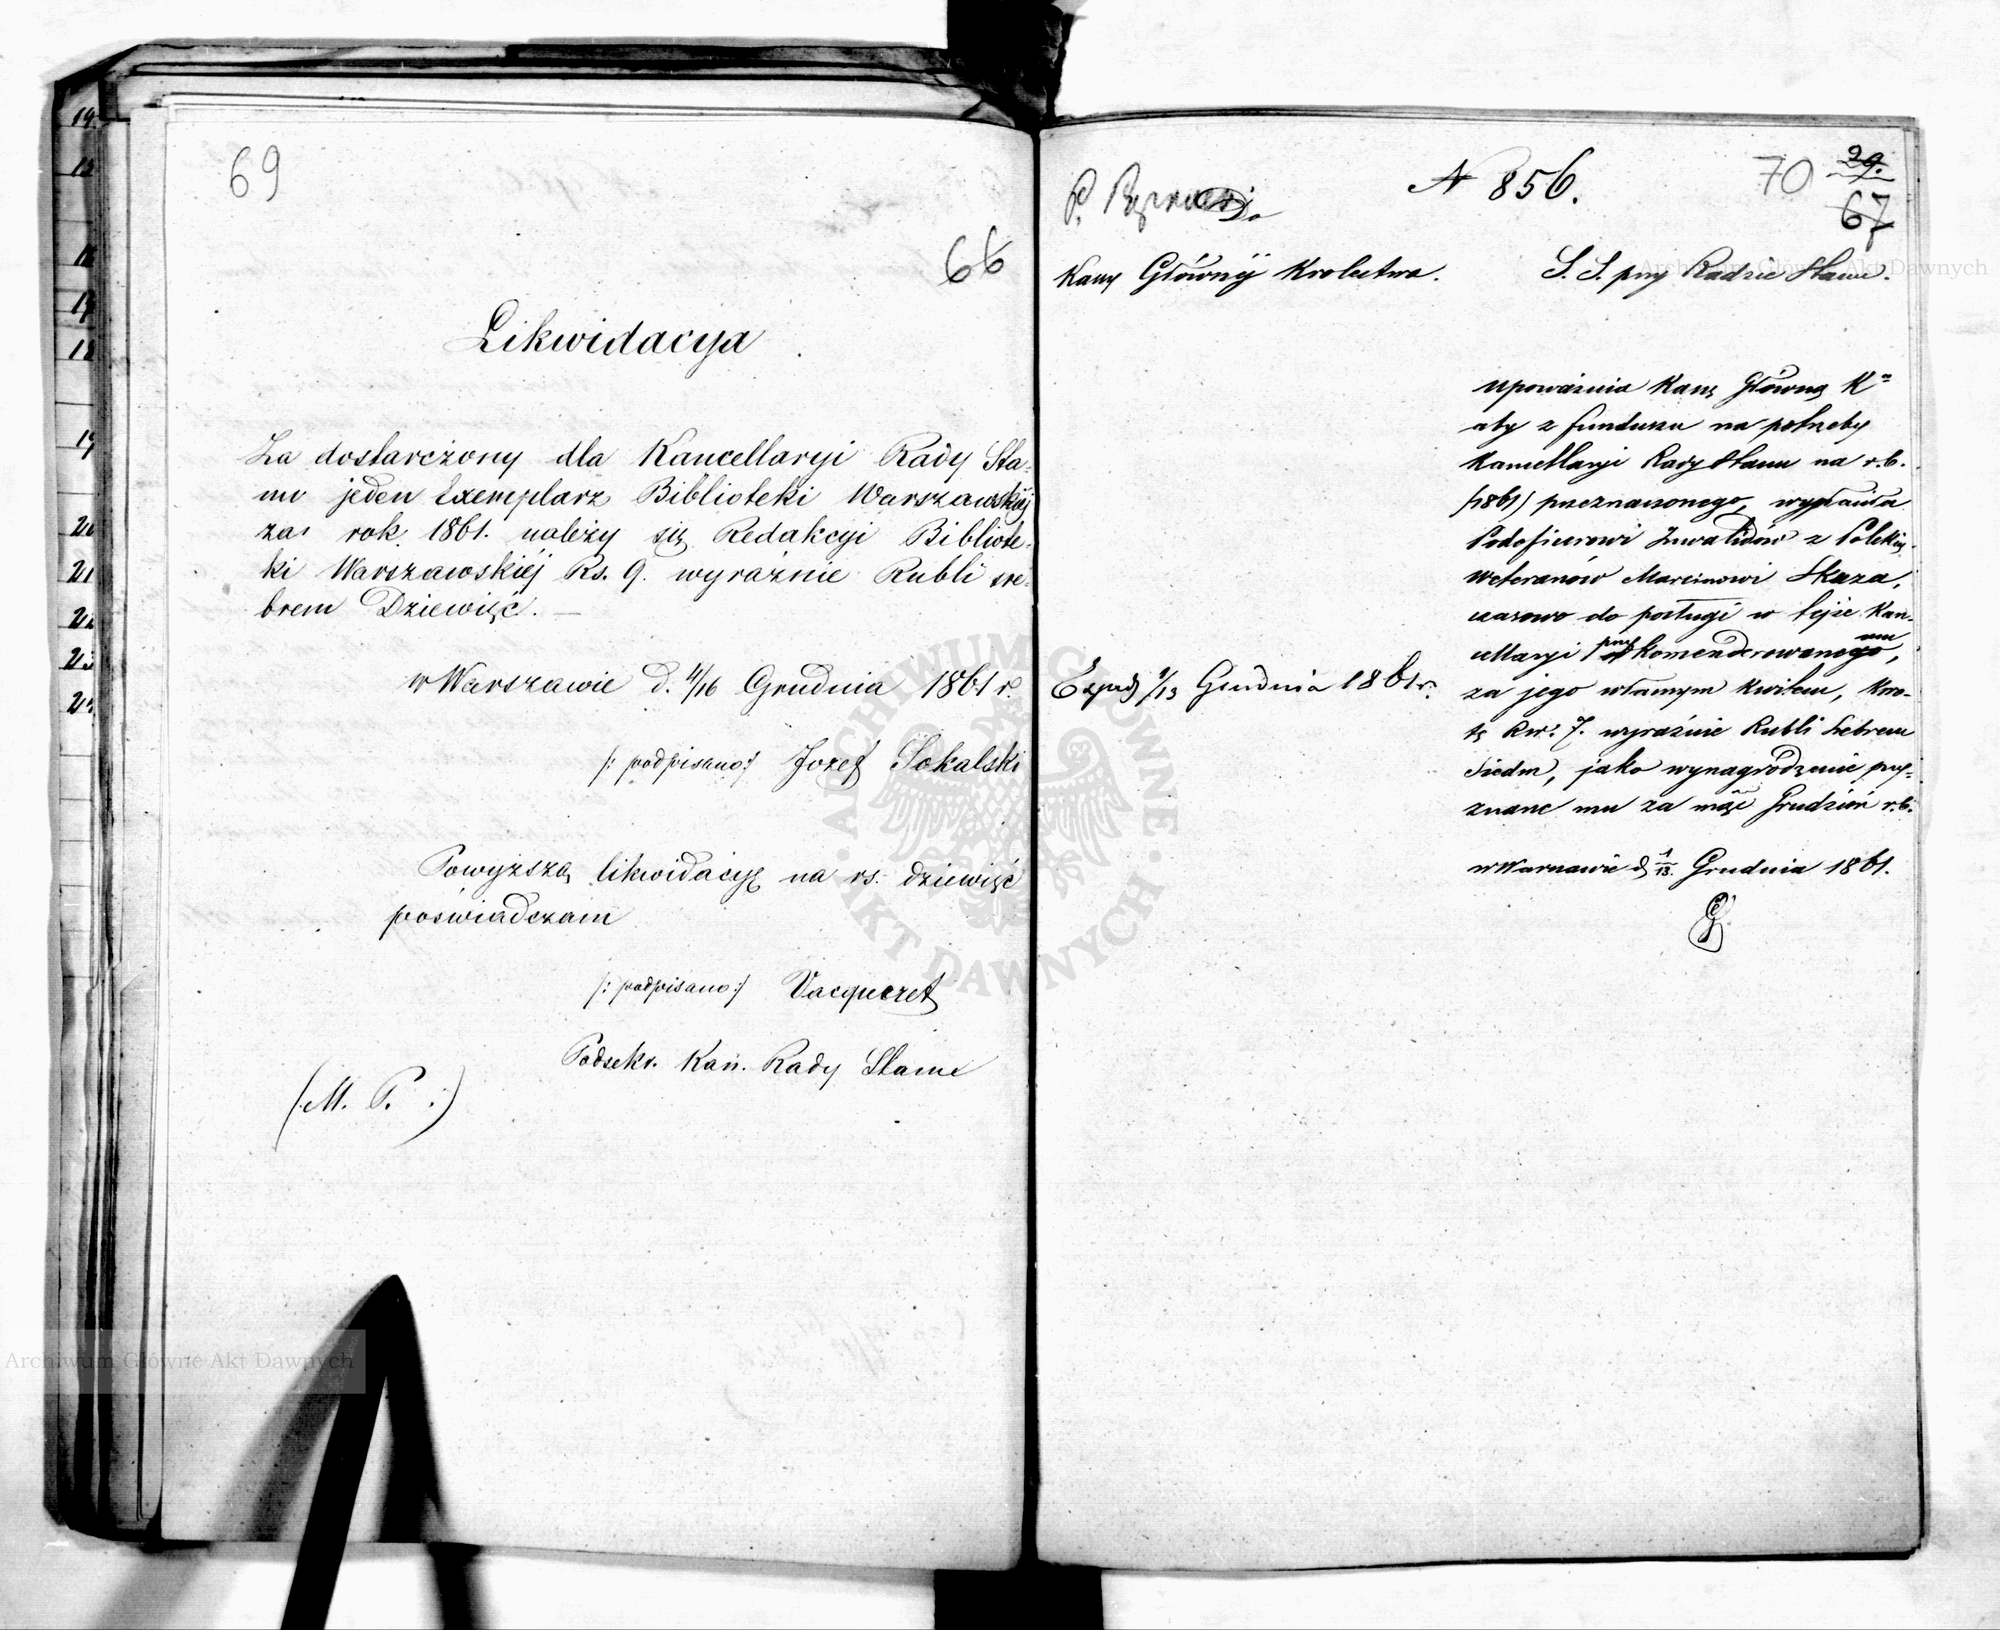 69
66
Likwidacyja
Za dostarczony dla Kancellaryi Rady Sta-
nu jeden Exemplarz Biblioteki Warszawskiéj
za rok 1861. należy się Redakcyi Bibliote-
ki Warszawskiéj Rs. 9. wyraźnie Rubli sre-
brem Dziewięć. —
w Warszawie d. 4/16 Grudnia 1861 r.
/: podpisano :/ Jozef Sokalski
Powyższą likwidacyę na rs. dziewięć
poświadczam
/: podpisano :/ Vacqueret
Podsekr. Kan. Rady Stanu
(: M. P. :)
N 856.
70
29.
67
P.
Do
Kassy Głównéj Królestwa.
S. S. przy Radzie Stanu.
upoważnia Kassę Główną Kr
aby z funduszu na potrzeby
Kancellaryi Rady Stanu na r.b.
/1861/ przeznaczonego, wypłaciła
Podoficerowi Inwalidów z Polskich
Weteranów Marcinowi Skaza,
czasowo do posługi w tejże Kan-
cellaryi przykomenderowanemu,
za jego własnym kwitem, kwo-
tę Rsr. 7. wyraźnie Rubli srebrem
siedm, jako wynagrodzenie przy-
znane mu za mąc Grudzień r.b.
w Warszawie d. 1/13. Grudnia 1861.
Exped. 1/13 Grudnia 1861 r.
14.
18
19
20
21
22
23
24
ARCHIWUM GŁÓWNE AKT DAWNYCH
Archiwum Główne Akt Dawnych
Archiwum Główne Akt Dawnych